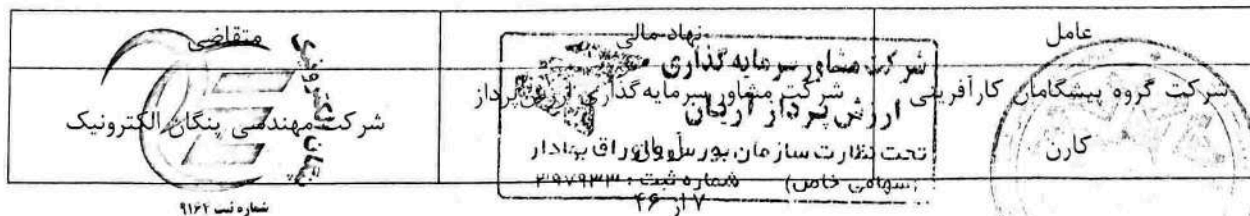 عامل
نهاد مالی
متقاضی
شرکت گروه پیشگامان کارآفرینی
کارن
شرکت مشاور سرمایه گذاری ارزش پرداز
آریان
شرکت مهندسی پنگان الکترونیک
شرکت مشاور سرمایه گذاری
ارزش پرداز آریان
تحت نظارت سازمان بورس و اوراق بهادار
(سهامی خاص) شماره ثبت: ۲۹۷۹۳۳
پنگان الکترونیک
شماره ثبت ۹۱۶۲
۷ از ۴۶